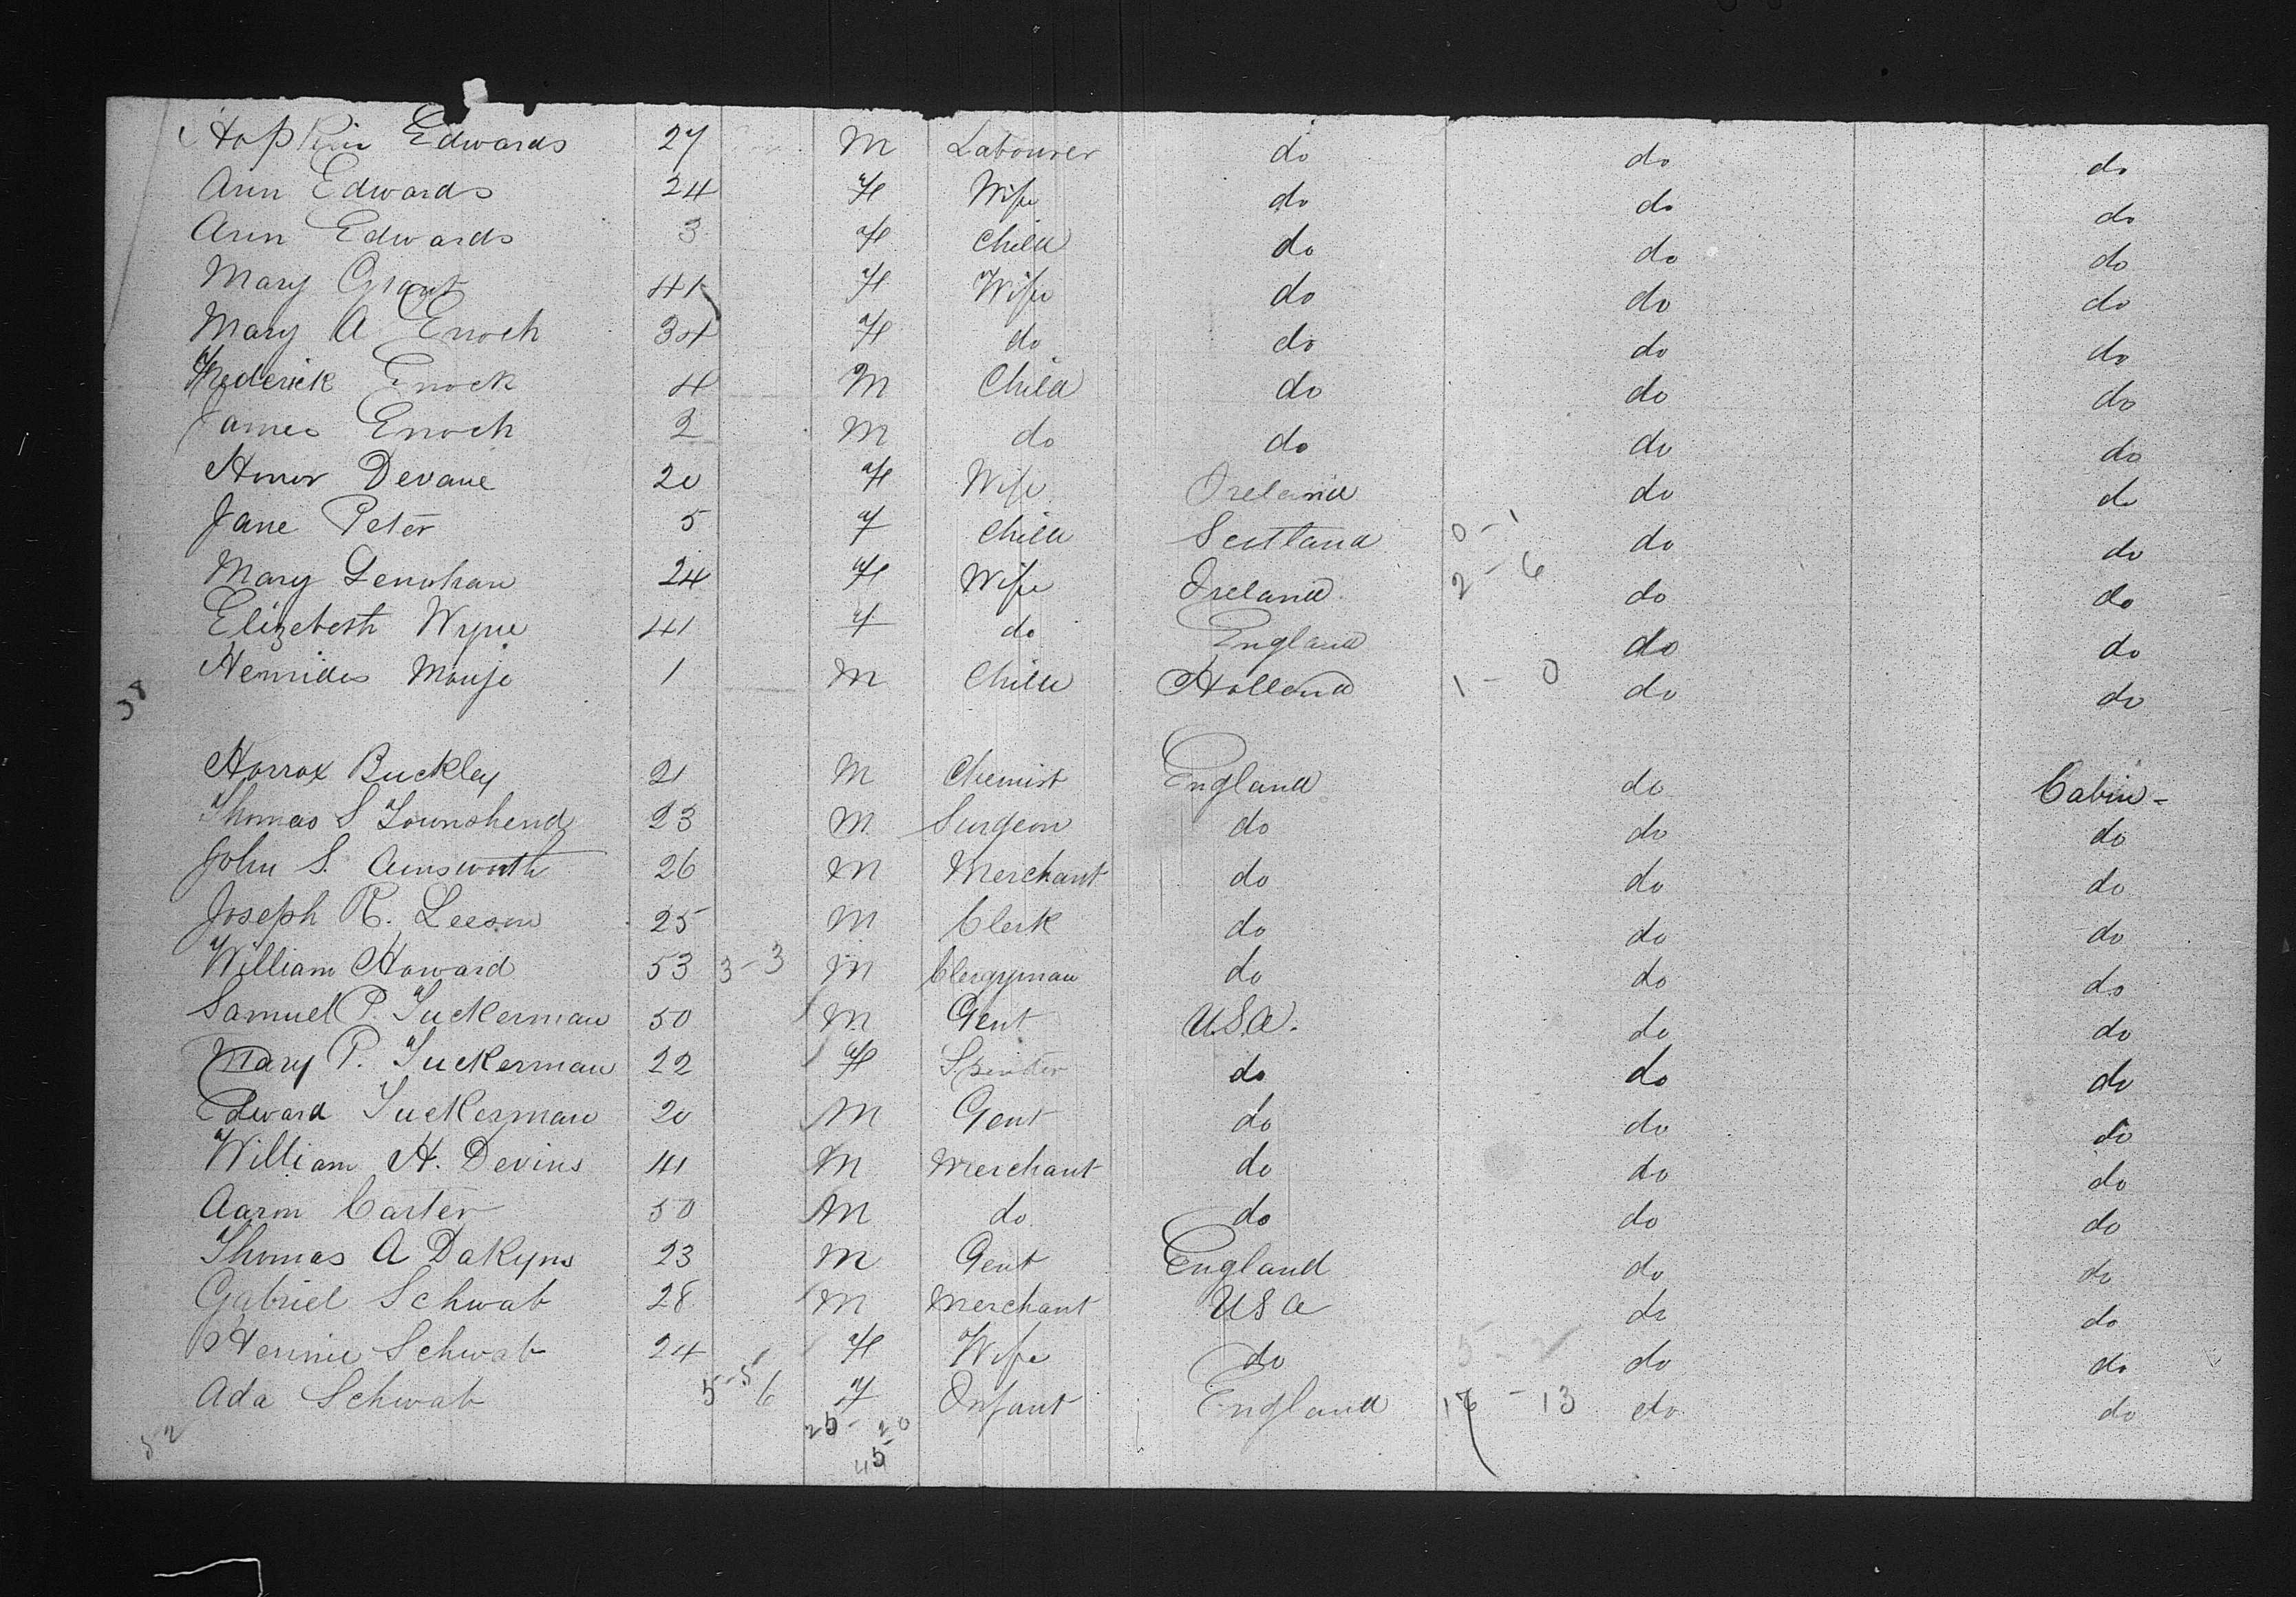 Hopkin Edwards 27 M Labourer do do do
Ann Edwards 24 F Wife do do do
Ann Edwards 3 F Child do do do
Mary Grant 41 F Wife do do do
Mary A Enoch 34 F do do do do
Frederick Enock 4 M Child do do do
James Enoch 2 M do do do do
Honor Devane 20 F Wife Ireland do do
Jane Peter 5 F Child Scotland 0-1 do do
Mary Lenohan 24 F Wife Ireland 2-6 do do
Elizebeth Wyne 41 F do England do do
38 1 M Child Holland 1-0 do do
Horrox Buckley 21 M Chemist England do Cabin-
Thomas S Townshend 23 M Surgeon do do do
John S. Ainsworth 26 M Merchant do do do
Joseph R. Leeson 25 M Clerk do do do
William Howard 53 3-3 M Clergyman do do do
Samuel P. Tuckerman 50 M Gent USA. do do
Mary P. Tuckerman 22 F Spinster do do do
Edward Tuckerman 20 M Gent do do do
William H. Devins 41 M Merchant do do do
Aaron Carter 50 M do do do do
Thomas A Dakyns 23 M Gent England do do
Gabriel Schwab 28 M Merchant USA do do
Hennie Schwab 24 F Wife do 5-2 do do
Ada Schwab 5-5 6 F Infant England 16-13 do do
52 25-20
45